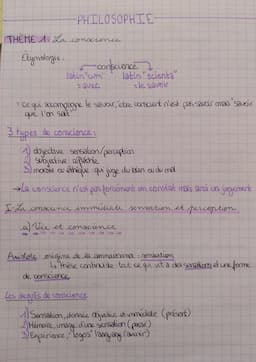 PHILOSOPHIE
THÈME 1: La conscience
Étymologie:
conscience
latin "cum" latin "scientia"
= avec = le savoir
Ce qui accompagne le savoir, être conscient n'est pas savoir mais savoir
que l'on sait
3 types de conscience:
1) objective sensation/perception
2) subjective
3) morale ou éthique qui juge du bien ou du mal
→ La conscience n'est pas forcément un constat mais aussi un jugement
I- La conscience immédiate sensation et perception
a) Vie et conscience
Aristote: origine de la connaissance: sensation
La thèse continuiste: tout ce qui vit a des sensations et une forme
de conscience
Les degrés de conscience
1) Sensation, donnée objective et immédiate (présent)
2) Mémoire, image d'une sensation (passé)
3) Expérience, "logos" language (avenir)